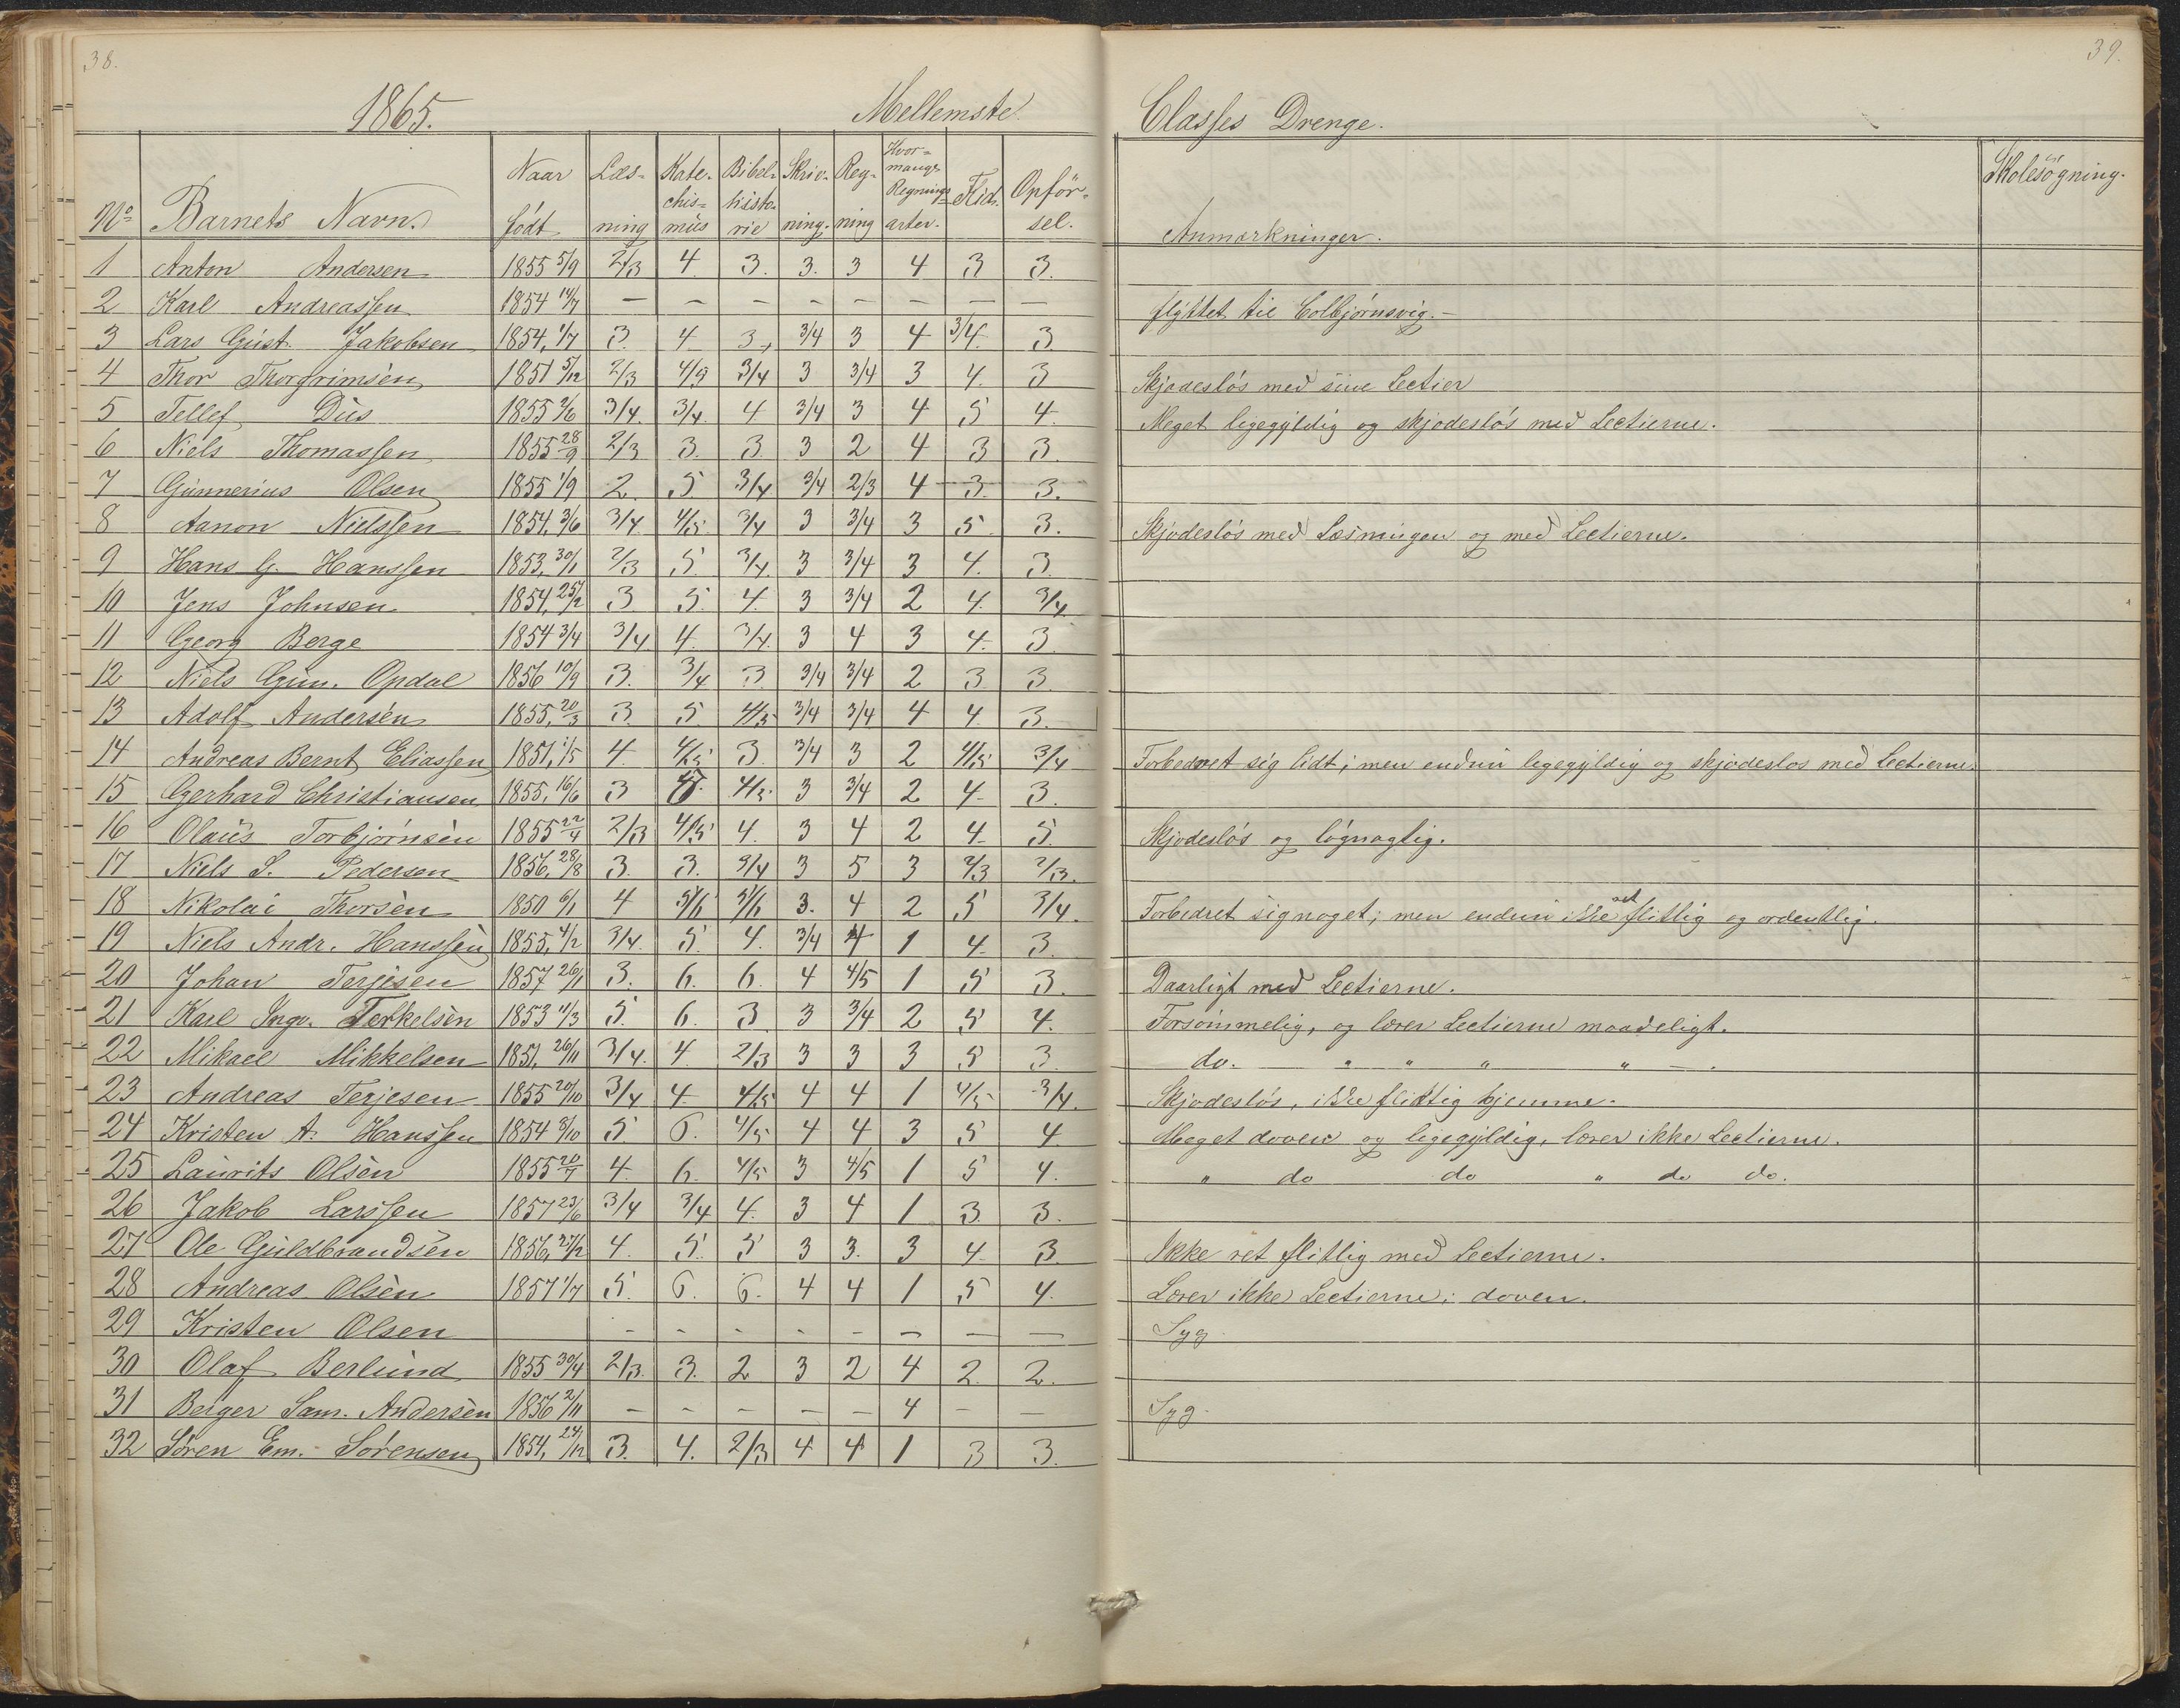 38.
39.
1865. Mellemste Classes Drenge.
No Barnets Navn. Naar født Læsning Katechismus Bibelhistorie Skrivning. Regning Hvormange Regningsarter. Flid. Opførsel. Anmærkninger. Skolesøgning.
1 Anton Andersen 1855 5/9 2/3 4 3. 3. 3 4 3 3.
2 Karl Andreassen 1854 14/7 — — — — — — — — flyttet til Colbjørnsvig.—
3 Lars Gust. Jakobsen 1854, 1/7 3. 4 3, 3/4 3 4 3/4. 3
4 Thor Thorgrimsen 1851 5/12 2/3 4/5 3/4 3 3/4 3 4. 3 Skjødesløs med sine Lectier
5 Tellef Dus 1855 2/6 3/4. 3/4. 4 3/4 3 4 5 4. Meget ligegyldig og skjødesløs med Lectierne.
6 Niels Thomassen 1855 28/9 2/3 3. 3. 3 2 4 3 3.
7 Gunnerius Olsen 1855 1/9 2. 5 3/4. 3/4 2/3 4 3. 3.
8 Aanon Nielssen 1854, 3/6 3/4. 4/5. 3/4 3 3/4 3 5. 3. Skjødesløs med Læsningen og med Lectierne.
9 Hans G. Hanssen 1853, 30/1 2/3 5. 3/4. 3 3/4 3 4. 3.
10 Jens Johnsen 1854, 25/2 3 5. 4. 3 3/4 2 4. 3/4
11 Georg Berge 1854 3/4 3/4 4. 3/4. 3 4 3 4. 3
12 Niels Gun. Opdal 1856 10/9 3. 3/4 3 3/4 3/4 2 3 3
13 Adolf Andersen 1855, 20/3 3. 5 4/5 3/4 3/4 4 4. 3.
14 Andreas Bernt Eliassen 1851, 1/5 4. 4/5 3 3/4 3 2 4/5 3/4 Forbedret sig lidt; men endnu ligegyldig og skjødesløs med Lectierne.
15 Gerhard Christiansen 1855, 16/6 3 5. 4/5. 3 3/4 2 4. 3.
16 Olaus Torbjørnsen 1855 22/4 2/3 4/5 4. 3 4 2 4. 5. Skjødesløs og løgnagtig.
17 Niels S. Pedersen 1856, 28/8 3. 3. 3/4 3 5 3 2/3 2/3.
18 Nikolai Thorsen 1850 6/1 4 5/6 5/6 3. 4 2 5 3/4. Forbedret sig noget; men endnu ikke ret flittig og ordentlig.
19 Niels Andr. Hanssen 1855, 4/2 3/4. 5. 4. 3/4 4 1 4. 3
20 Johan Terjesen 1857 26/1 3. 6. 6. 4 4/5 1 5 3. Daarligt med Lectierne.
21 Karl Ingv. Terkelsen 1853 4/3 5. 6. 3 3 3/4 2 5 4. Forsømmelig, og lærer Lectierne maadeligt.
22 Mikael Mikkelsen 1851, 26/11 3/4. 4 2/3 3 3 3 5 3 do. " " " " —.
23 Andreas Terjesen 1855 20/10 3/4 4 4/5 4 4 1 4/5 3/4. Skjødesløs, ikke flittig hjemme.
24 Kristen A. Hanssen 1854 8/10 5 6. 4/5 4 4 3 5 4. Meget doven og ligegyldig, lærer ikke Lectierne.
25 Laurits Olsen 1855 20/7 4. 6. 4/5 3 4/5 1 5 4. " do do " do do.
26 Jakob Larssen 1857 23/6 3/4 3/4 4. 3 4 1 3. 3.
27 Ole Guldbrandsen 1856, 27/2 4. 5. 5 3 3. 3 4. 3 Ikke ret flittig med Lectierne.
28 Andreas Olsen 1857 1/7 5. 6. 6. 4 4 1 5 4. Lærer ikke Lectierne; doven.
29 Kristen Olsen — — — — — — — — Syg.
30 Olaf Berlund 1855 30/4 2/3. 3. 2 3 2 4 2. 2.
31 Berger Sam. Andersen 1856 2/11 — — — — — 4 — — Syg.
32 Søren Em. Sørensen 1854, 24/12 3. 4. 2/3 4 4 1 3 3.